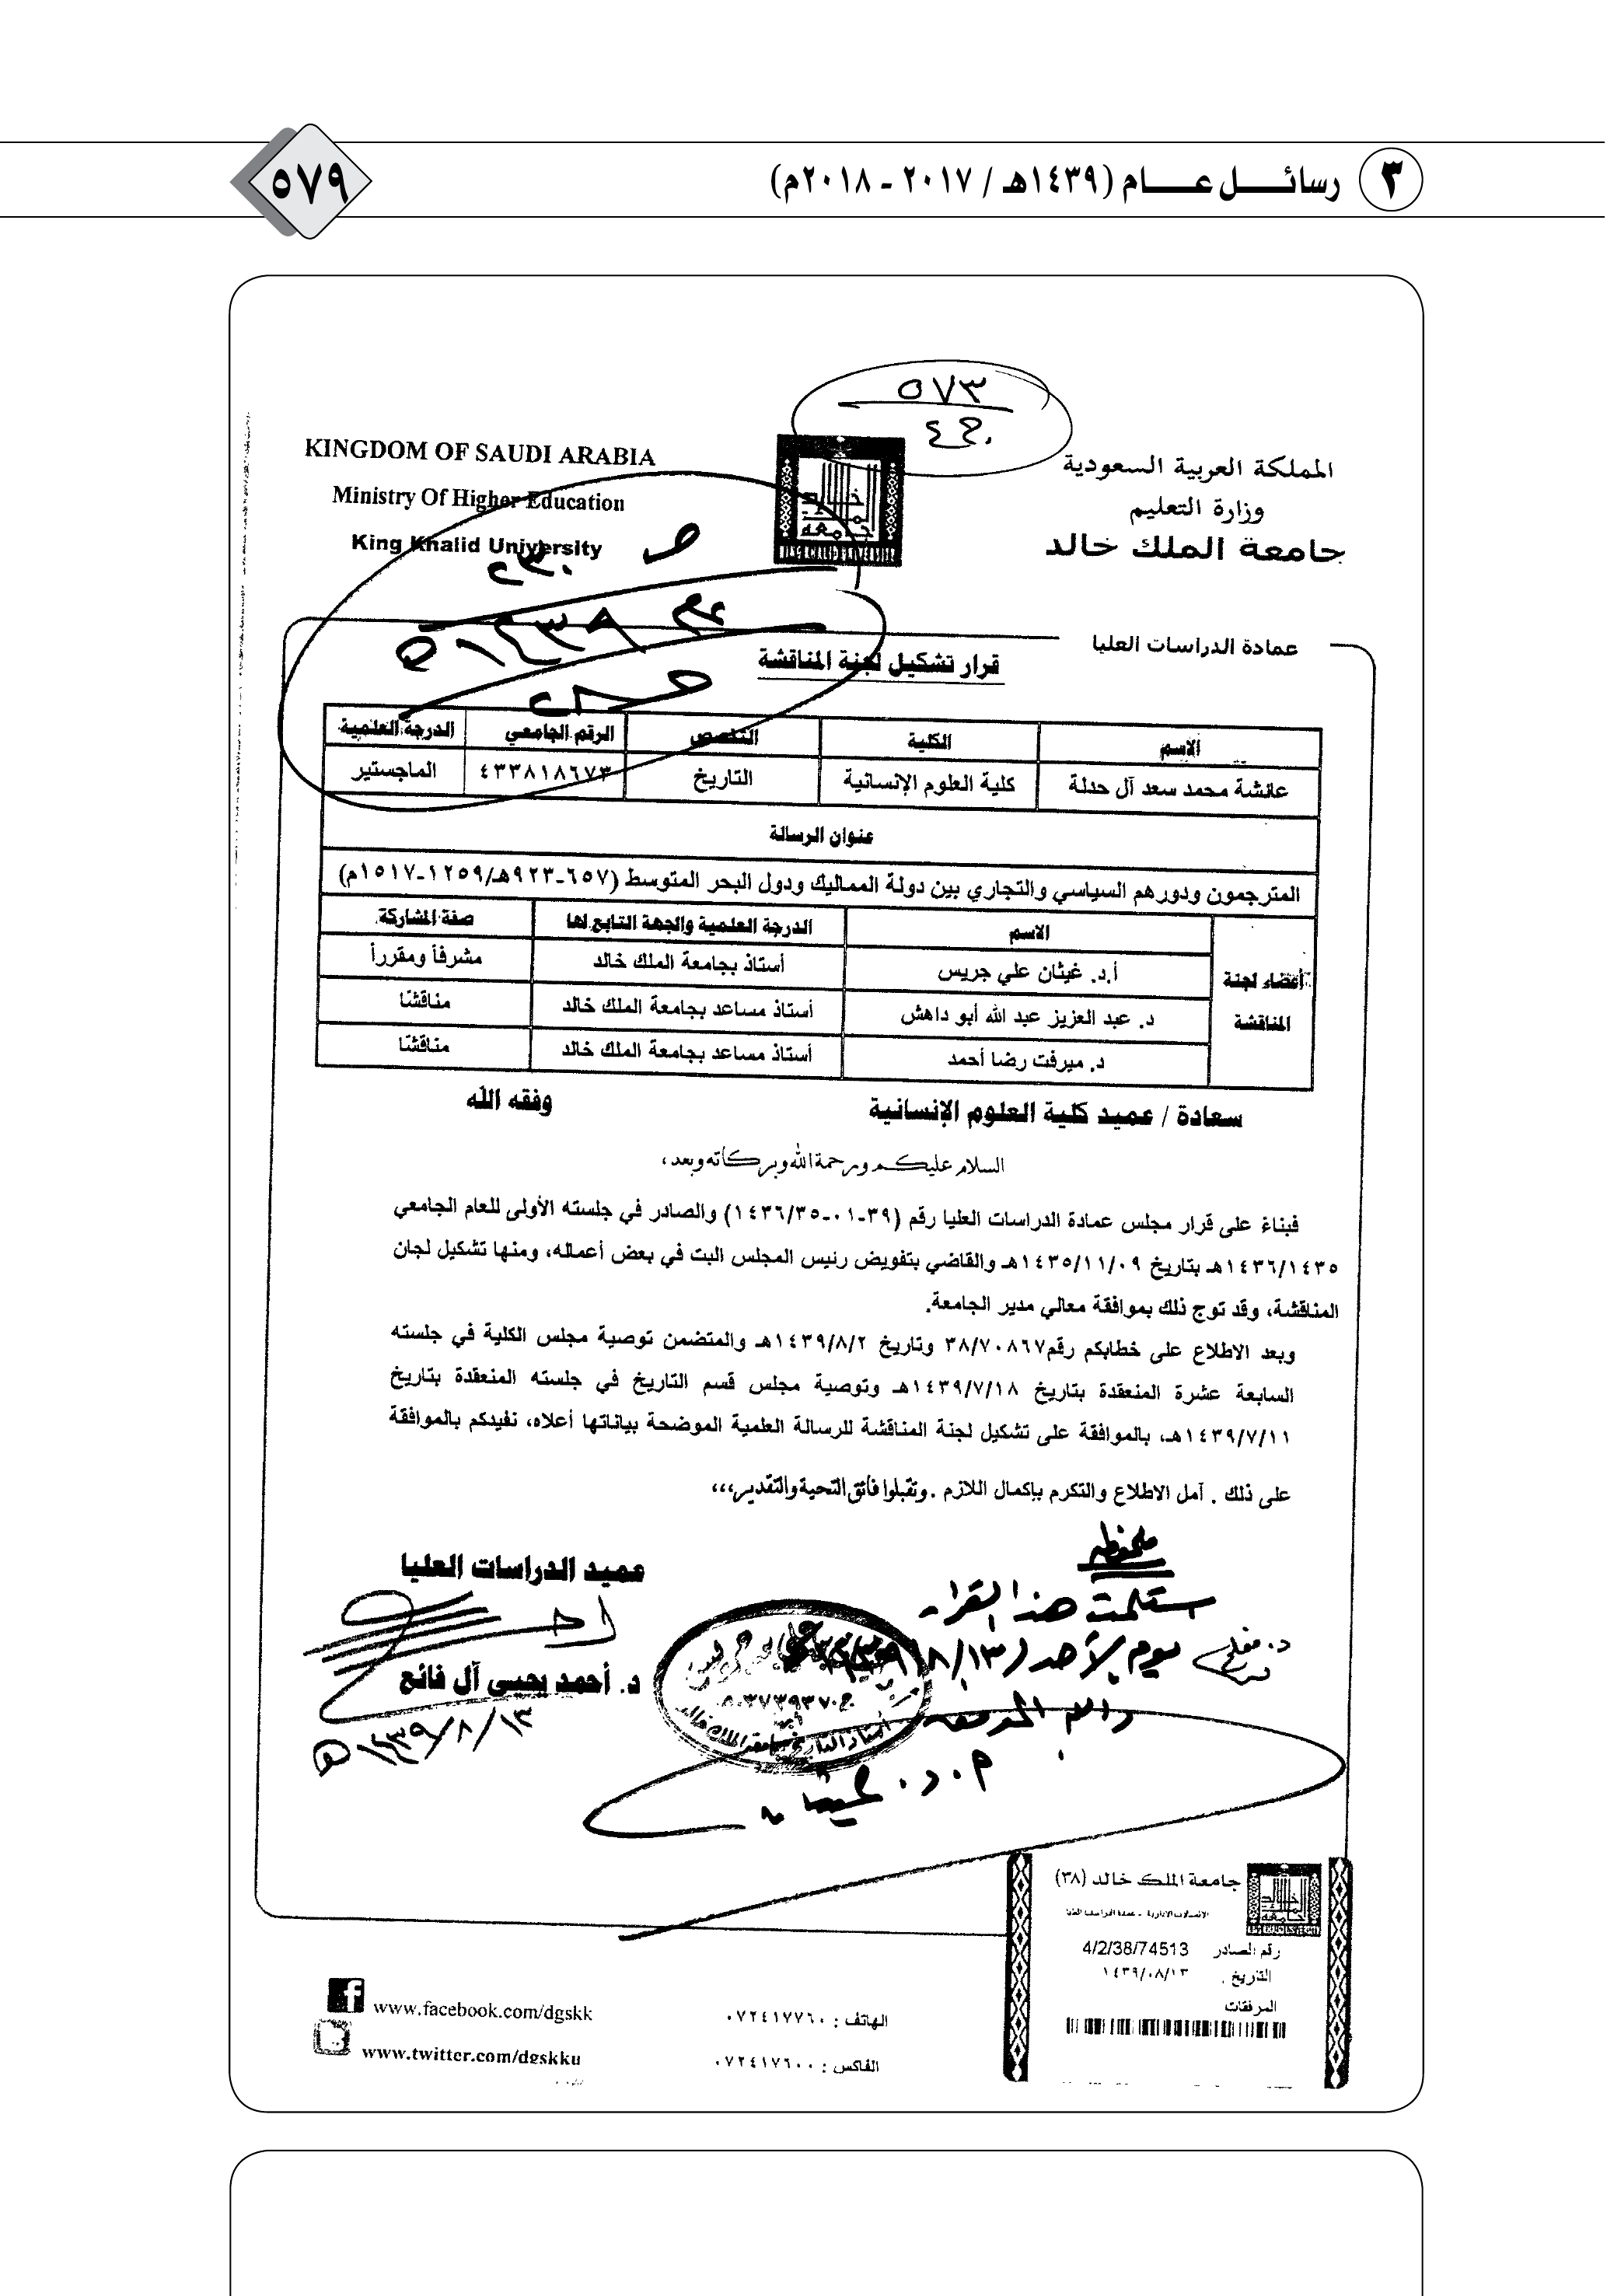 ٣ رسائل عام (١٤٣٩هـ / ٢٠١٧ - ٢٠١٨م) ٥٧٩
٥٧٣
KINGDOM OF SAUDI ARABIA
Ministry Of Higher Education
King Khalid University
المملكة العربية السعودية
وزارة التعليم
جامعة الملك خالد
عمادة الدراسات العليا
قرار تشكيل لجنة المناقشة
الاسم الكلية التخصص الرقم الجامعي الدرجة العلمية
عائشة محمد سعد آل حدلة كلية العلوم الإنسانية التاريخ ٤٣٣٨١٨٦٧٣ الماجستير
عنوان الرسالة
المترجمون ودورهم السياسي والتجاري بين دولة المماليك ودول البحر المتوسط (٦٥٧-٩٢٣هـ/١٢٥٩-١٥١٧م)
أعضاء لجنة المناقشة
الاسم الدرجة العلمية والجهة التابع لها صفة المشاركة
أ.د. غيثان علي جريس أستاذ بجامعة الملك خالد مشرفاً ومقرراً
د. عبد العزيز عبد الله أبو داهش أستاذ مساعد بجامعة الملك خالد مناقشا
د. ميرفت رضا أحمد أستاذ مساعد بجامعة الملك خالد مناقشا
سعادة / عميد كلية العلوم الإنسانية وفقه الله
السلام عليكم ورحمة الله وبركاته وبعد،
فبناءً على قرار مجلس عمادة الدراسات العليا رقم (٣٩-٠١-١٤٣٦/٣٥) والصادر في جلسته الأولى للعام الجامعي
١٤٣٦/١٤٣٥هـ بتاريخ ١٤٣٥/١١/٠٩هـ والقاضي بتفويض رئيس المجلس البت في بعض أعماله، ومنها تشكيل لجان
المناقشة، وقد توج ذلك بموافقة معالي مدير الجامعة.
وبعد الاطلاع على خطابكم رقم٣٨/٧٠٨٦٧ وتاريخ ١٤٣٩/٨/٢هـ والمتضمن توصية مجلس الكلية في جلسته
السابعة عشرة المنعقدة بتاريخ ١٤٣٩/٧/١٨هـ وتوصية مجلس قسم التاريخ في جلسته المنعقدة بتاريخ
١٤٣٩/٧/١١هـ، بالموافقة على تشكيل لجنة المناقشة للرسالة العلمية الموضحة بياناتها أعلاه، نفيدكم بالموافقة
على ذلك . آمل الاطلاع والتكرم بإكمال اللازم .وتقبلوا فائق التحية والتقدير،،،
ملحوظة
استلمت هذا القرار
يوم الأحد
عميد الدراسات العليا
د. أحمد يحيى آل فائع
١٤٣٩/٨/١٣هـ
جامعة الملك خالد (٣٨)
الاتصالات الادارية - عمادة الدراسات العليا
رقم الصادر 4/2/38/74513
التاريخ . ١٤٣٩/٠٨/١٣
المرفقات
www.facebook.com/dgskk
www.twitter.com/dgskku
الهاتف : ٠٧٢٤١٧٧٦٠
الفاكس : ٠٧٢٤١٧٦٠٠